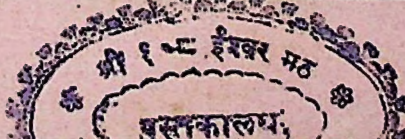 श्री १०८ ईश्वर मठ
पुस्तकालयः